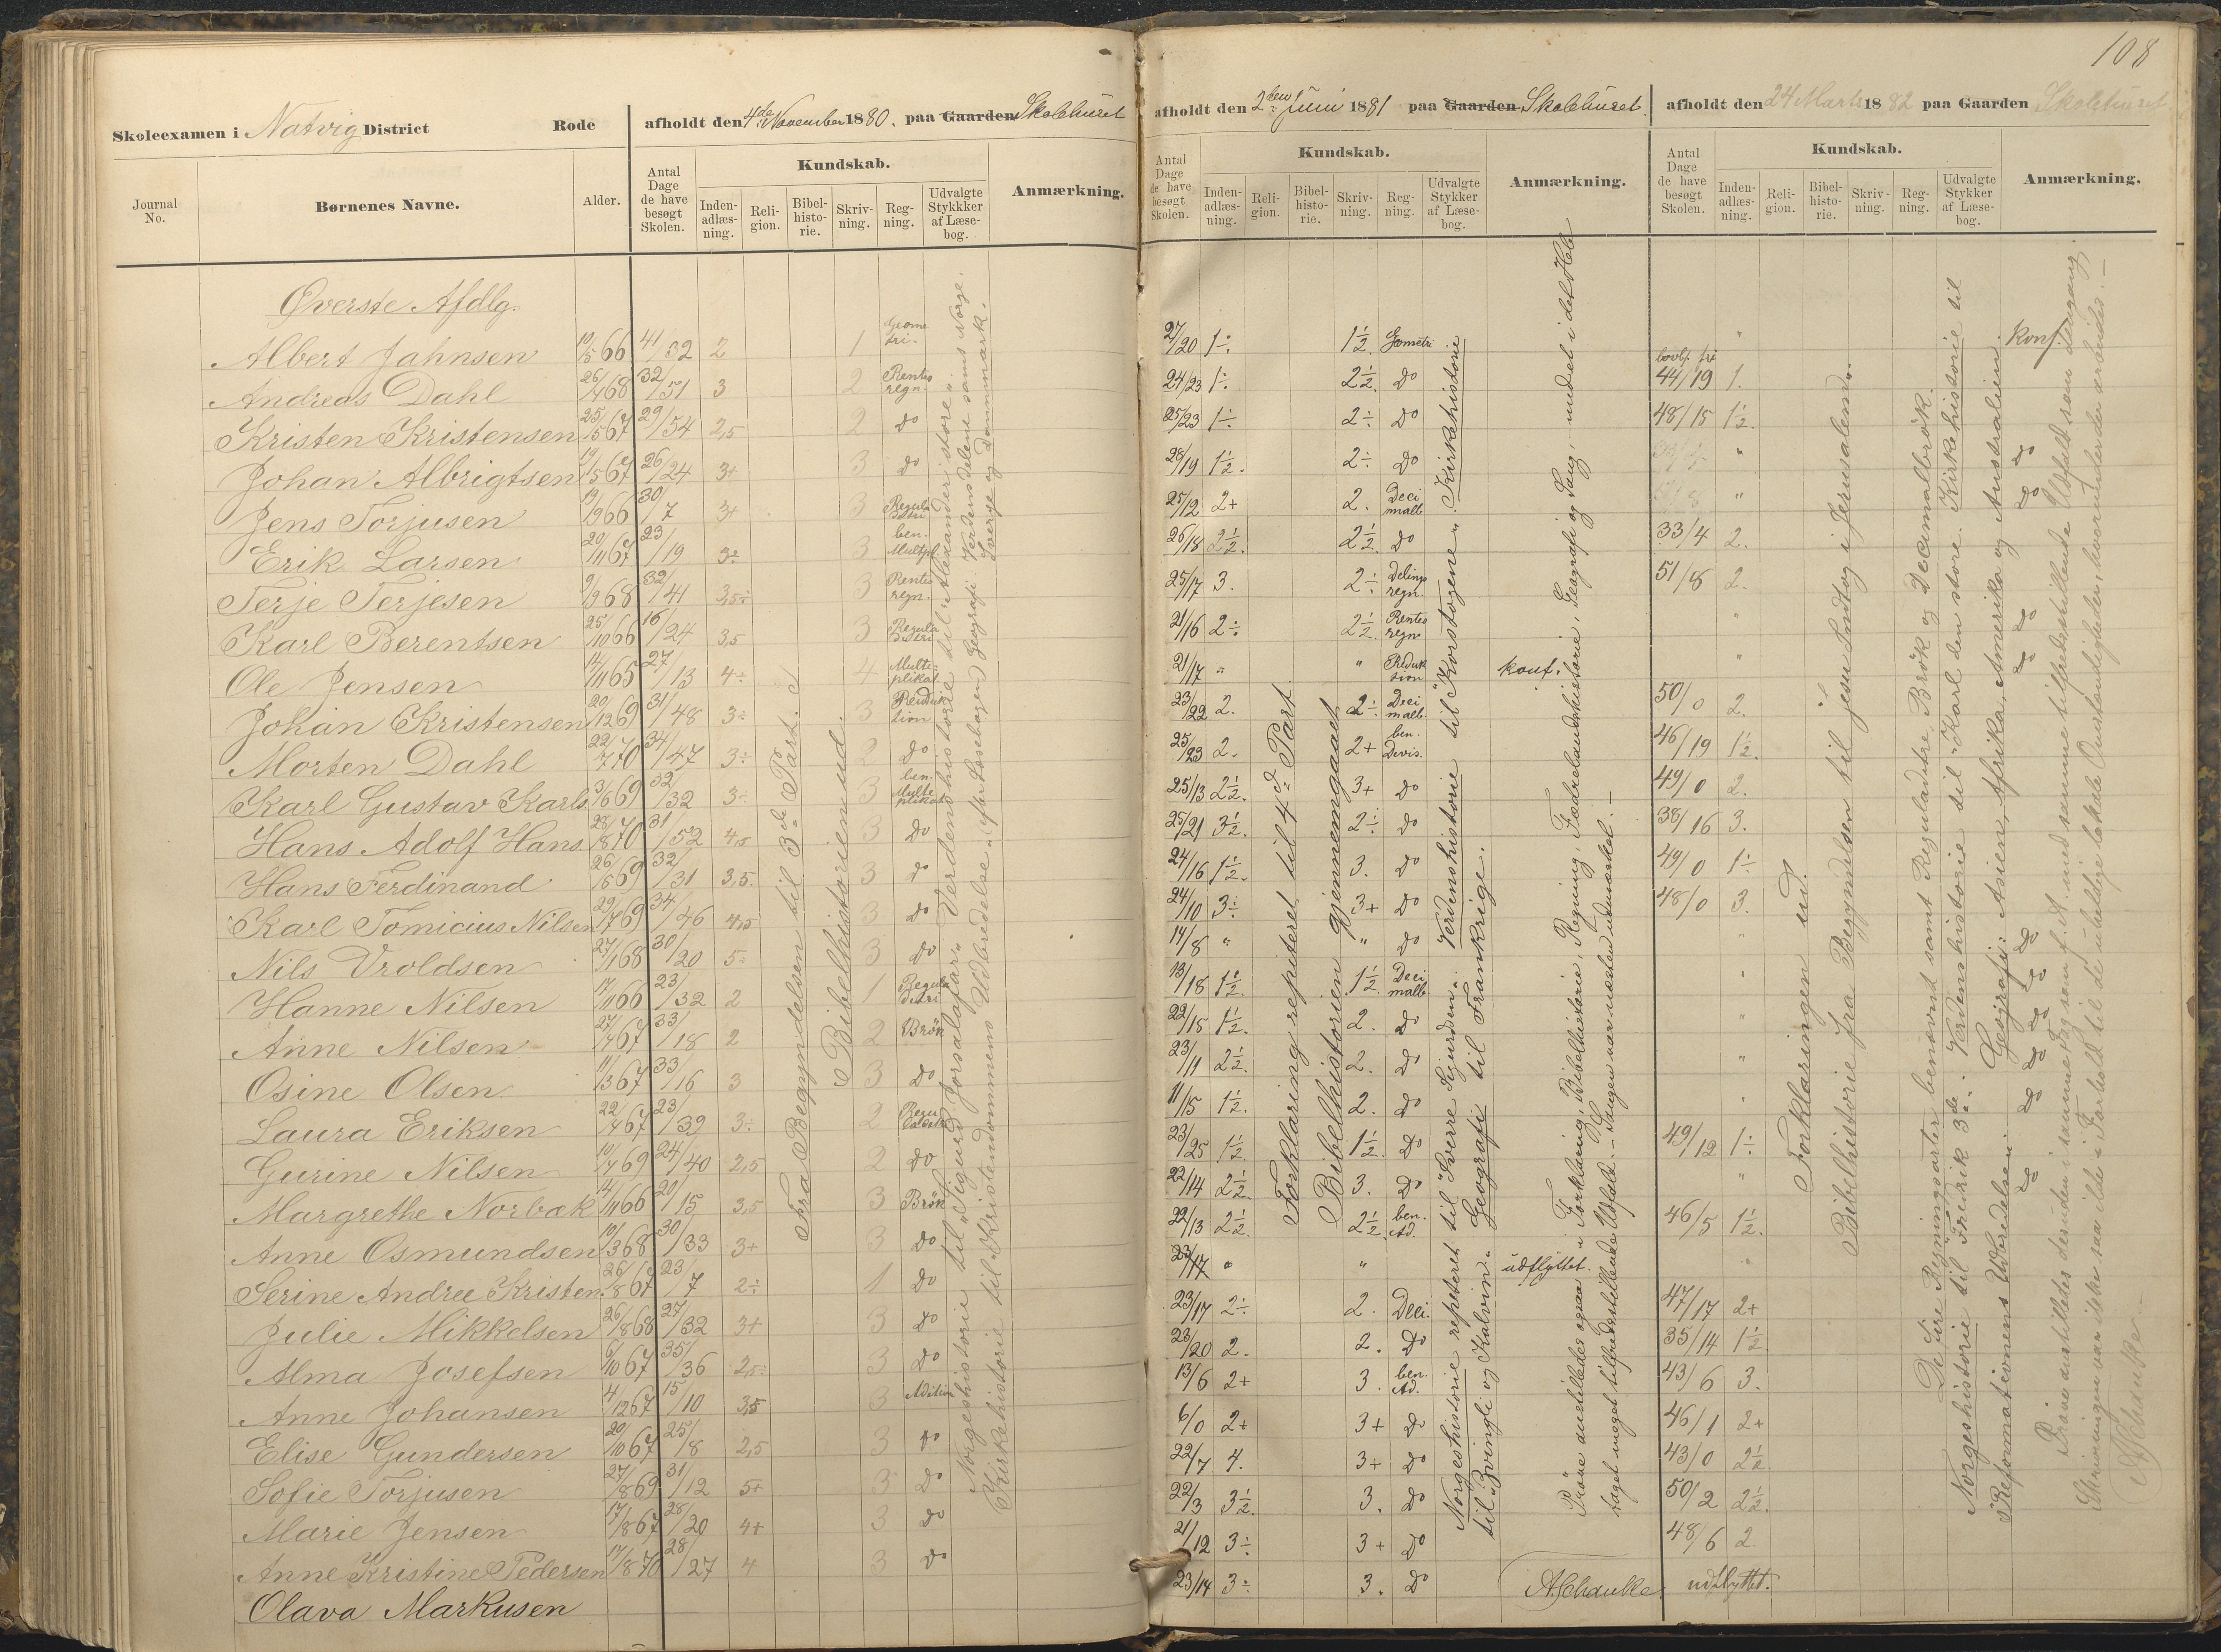 108
Skoleexamen i Natvig District Rode
afholdt den 4de November 1880. paa Gaarden Skolehuset
afholdt den 2den Juni 1881 paa Gaarden Skolehuset.
afholdt den 24 Marts 1882 paa Gaarden Skolehuset
Journal No. Børnenes Navne. Alder. Antal Dage de have besøgt Skolen. Kundskab. Inden-adlæs-ning. Reli-gion. Bibel-histo-rie. Skriv-ning. Reg-ning. Udvalgte Stykkker af Læse-bog. Anmærkning.
Antal Dage de have besøgt Skolen. Kundskab. Inden-adlæs-ning. Reli-gion. Bibel-histo-rie. Skriv-ning. Reg-ning. Udvalgte Stykker af Læse-bog. Anmærkning.
Antal Dage de have besøgt Skolen. Kundskab. Inden-adlæs-ning. Reli-gion. Bibel-histo-rie. Skriv-ning. Reg-ning. Udvalgte Stykker af Læse-bog. Anmærkning.
Øverste Afdlg.
Albert Jahnsen 10/5 66 41/32 2 1 Geome tri. 27/20 1÷. 1½. Gometri " konf.
Andreas Dahl 26/4 68 32/51 3 2 Rentes regn. 24/23 1÷. 2½. Do 44/19 1.
Kristen Kristensen 25/5 67 29/54 2,5 2 do 25/23 1÷ 2÷ Do 48/15 1½.
Johan Albrigtsen 19/5 67 26/24 3+ 3 do 28/19 1½. 2÷ Do " do
Jens Torjusen 19/9 66 30/7 3+ 3 Regula detri 25/12 2+ 2. Deci malb. " do
Erik Larsen 20/11 67 23/19 3÷ 3 ben. Multpl. 26/18 2½. 2½. Do 33/4 2.
Terje Terjesen 9/9 68 32/41 3,5÷ 3 Rentes regn. 25/17 3. 2÷ Delings regn. 51/8 2.
Karl Berentsen 25/10 66 16/24 3,5 3 Regula detri 21/16 2÷. 2½ Rentes regn. " do
Ole Jensen 14/11 65 27/13 4÷ 4 Multi-plikat. 21/17 " " Reduk sion konf. " do
Johan Kristensen 20/12 69 31/48 3÷ 3 Reduk tion 23/22 2. 2÷ Deci malb. 50/0 2.
Morten Dahl 22/7 70 34/47 3÷ 2 Do 25/23 2. 2+ ben. Devis. 46/19 1½.
Karl Gustav Karls. 3/6 69 32/32 3÷ 3 ben. Multi plikat 25/13 2½. 3+ do 49/0 2.
Hans Adolf Hans. 28/8 70 31/52 4,5 3 Do 25/21 3½. 2÷ do 38/16 3.
Hans Ferdinand 26/6 69 32/31 3,5. 3 do 24/16 1½. 3. Do 49/0 1÷
Karl Tomicius Nilsen 29/7 69 34/46 4,5 3 do 24/10 3÷ 3+ do 48/0 3.
Nils Vroldsen 27/1 68 30/20 5÷ 3 do 14/8 " " do " do
Hanne Nilsen 17/11 66 23/32 2 1 Regula detri 13/18 1½. 1½. Deci malb. " do
Anne Nilsen 27/4 67 33/18 2 2 Brök 22/15 1½. 2. Do " do
Osine Olsen 11/3 67 33/16 3 3 do 23/11 2½. 2. Do " do
Laura Eriksen 22/4 67 23/39 3÷ 2 11/15 1½. 2. Do " do
Gurine Nilsen 10/4 69 24/40 2,5 2 do 23/25 1½. 1½. Do 49/12 1÷
Margrethe Norbæk 14/11 66 20/15 3,5 3 Brök 22/14 2½. 3. Do " do
Anne Osmundsen 19/3 68 30/33 3+ 3 do 22/13 2½. 2½ ben. Ad. 46/5 1½.
Serine Andree Kristen. 26/8 67 23/7 2÷ 1 do 23/17 " " udflyttet. "
Julie Mikkelsen 26/8 68 27/32 3+ 3 do 23/17 2÷. 2. Deci. 47/17 2+
Alma Josefsen 6/10 67 35/36 2,5÷ 3 do 23/20 2. 2. Do 35/14 1½.
Anne Johansen 4/12 67 15/10 3,5 3 Adition 13/6 2+ 3. ben. Ad. 43/6 3.
Elise Gundersen 20/10 67 25/8 2,5 3 do 6/0 2+ 3+ do 46/1 2+
Sofie Torjusen 27/8 69 31/12 5+ 3 do 22/7 4. 3+ do 43/0 2½
Marie Jensen 17/8 67 28/20 4+ 3 do 22/3 3½. 3. do 50/2 2½.
Anne Kristine Pedersen 17/8 70 28/27 4 3 do 21/12 3÷ 3+ do 48/6 2.
Olava Markusen 23/14 3÷ 3. Do udflyttet.
Fra Begyndelsen til 3d. Part.
Bibelhistorien ud.
Norgeshistorie til "Sigurd Jorsalafar" Verdenshistorie til "Alexander store".
Kirkehistorie til "Kristendommens Udbredelse". (efter Læsebogen) Geografi Verdensdelene samt Norge,
Sverge og Dannmark.
Forklaring repiteret til 4d. Part.
Bibelhistorien gjennemgaaet
Norgeshistorie repeteret til "Sverre Sigurdsn". Verdenshistorie til "Korstogene". Kirkehistorie
til "Zvingli og Kalvin". Geografi til Frankrige.
Prøve anstilledes ogsaa i Forklaring, Bibelhistorie, Regning, Fædrelandshistorie, Geografi og Sang, med et i det Hele
taget meget tilfredsstillende Udfald. – Sangen var næsten udmærket. –
A. Schanke.
Forklaringen ud.
Bibelhistorie fra Begyndelsen til Jesu Indtog i Jerusalem.
De fire Regningsarter benævnt samt Reguladetre Brök og Decimalbrök.
Norgeshistorie til Fredrik 3de.. Verdenshistorie til "Karl den store. Kirkehistorie til
"Reformationens Udbredelse". Geografi: Asien, Afrika, Amerika og Australien.
Prøve anstilledes desuden i samme Fag som f. A. med samme tilfredsstillende Udfald som dengang.
Skrivningen var ikke saa ilde i Forhold til de uheldige lokale Omstændigheder, hvorunder
A Schanke –